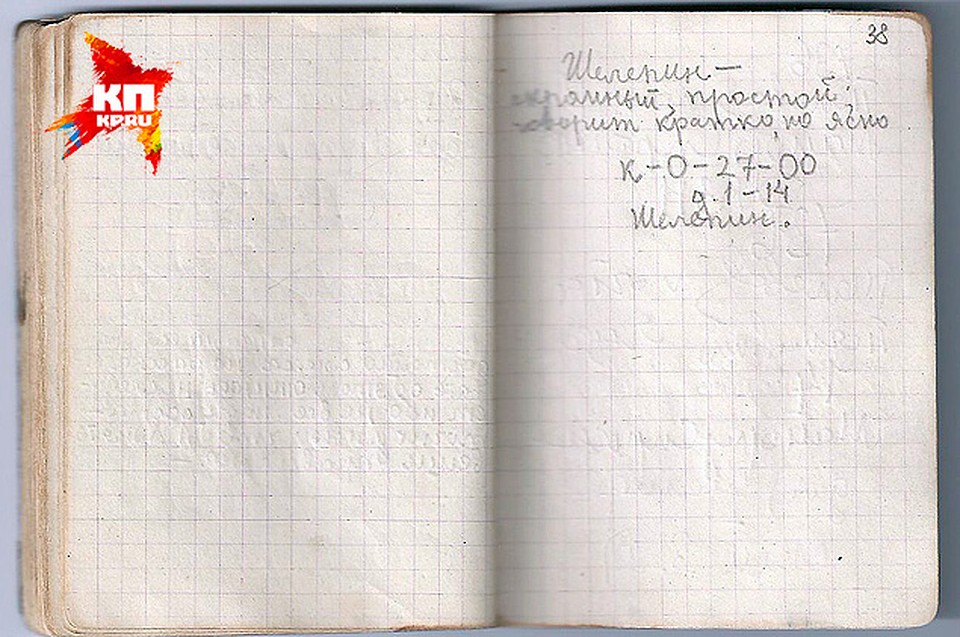 КП
KP.RU
38
Шелепин —
скромный, простой,
говорит кратко, но ясно
к-0-27-00
д. 1-14
Шелепин.